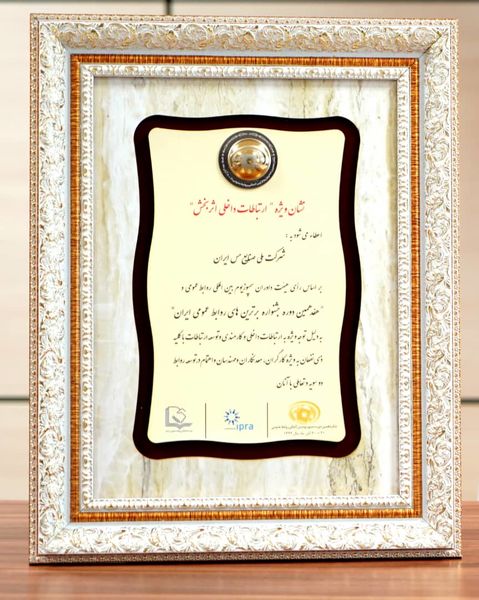 نشان ویژه " ارتباطات داخلی اثربخش "
اعطاء می شود به :
شرکت ملی صنایع مس ایران
بر اساس رای هیئت داوران سمپوزیوم بین المللی روابط عمومی و
"هفدهمین دوره جشنواره برترین های روابط عمومی ایران"
به دلیل توجه ویژه به ارتباطات داخلی و کارمندی و توسعه ارتباطات با کلیه
ذی نفعان به ویژه کارگران، معدنکاران و مهندسان و اهتمام در توسعه روابط
دو سویه و تعاملی با آنان
ipra